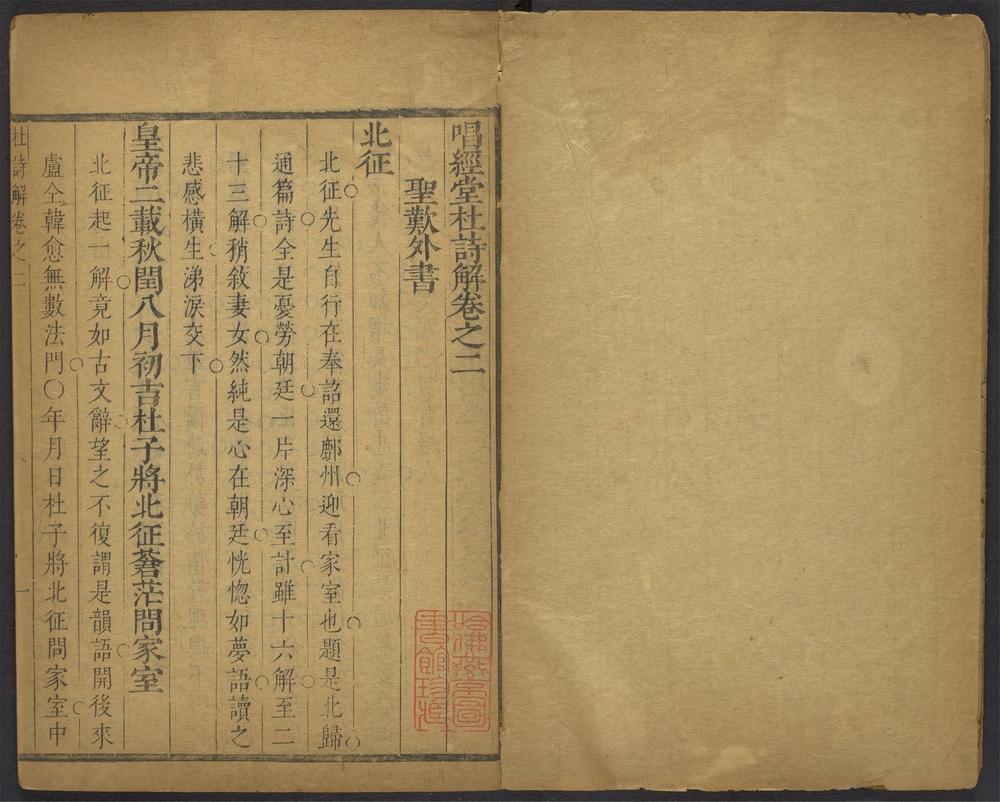 唱經堂杜詩解卷之二
聖歎外書
北征
北征先生自行在奉詔還鄜州迎看家室也題是北歸
通篇詩全是憂勞朝廷一片深心至計雖十六解至二
十三解稍敘妻女然純是心在朝廷恍惚如夢語讀之
悲感橫生涕淚交下
皇帝二載秋閏八月初吉杜子將北征蒼茫問家室
北征起一解竟如古文辭望之不復謂是韻語開後來
盧仝韓愈無數法門〇年月日杜子將北征問家室中
杜詩解卷之二
一
哈佛燕京圖
書館珍藏